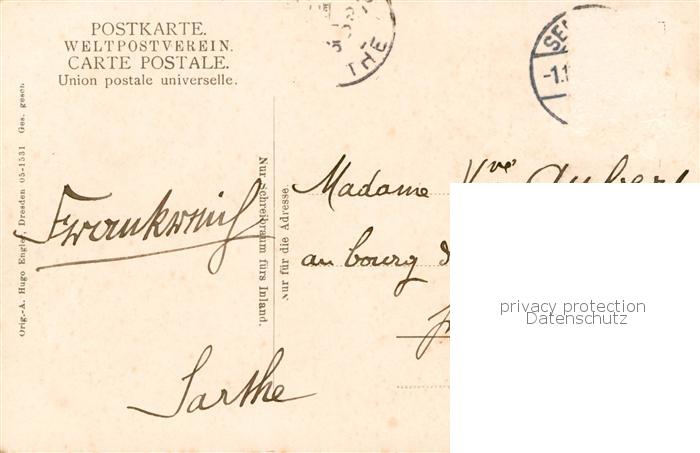 POSTKARTE.
WELTPOSTVEREIN.
CARTE POSTALE.
Union postale universelle.
Orig.-A. Hugo Engler, Dresden 05-1531 Ges. gesch
Nur Schreibraum fürs Inland.
Nur für die Adresse.
THE
SE
-1.1
Madame Vve Aubert
au bourg d
Frankreich
Sarthe
privacy protection
Datenschutz